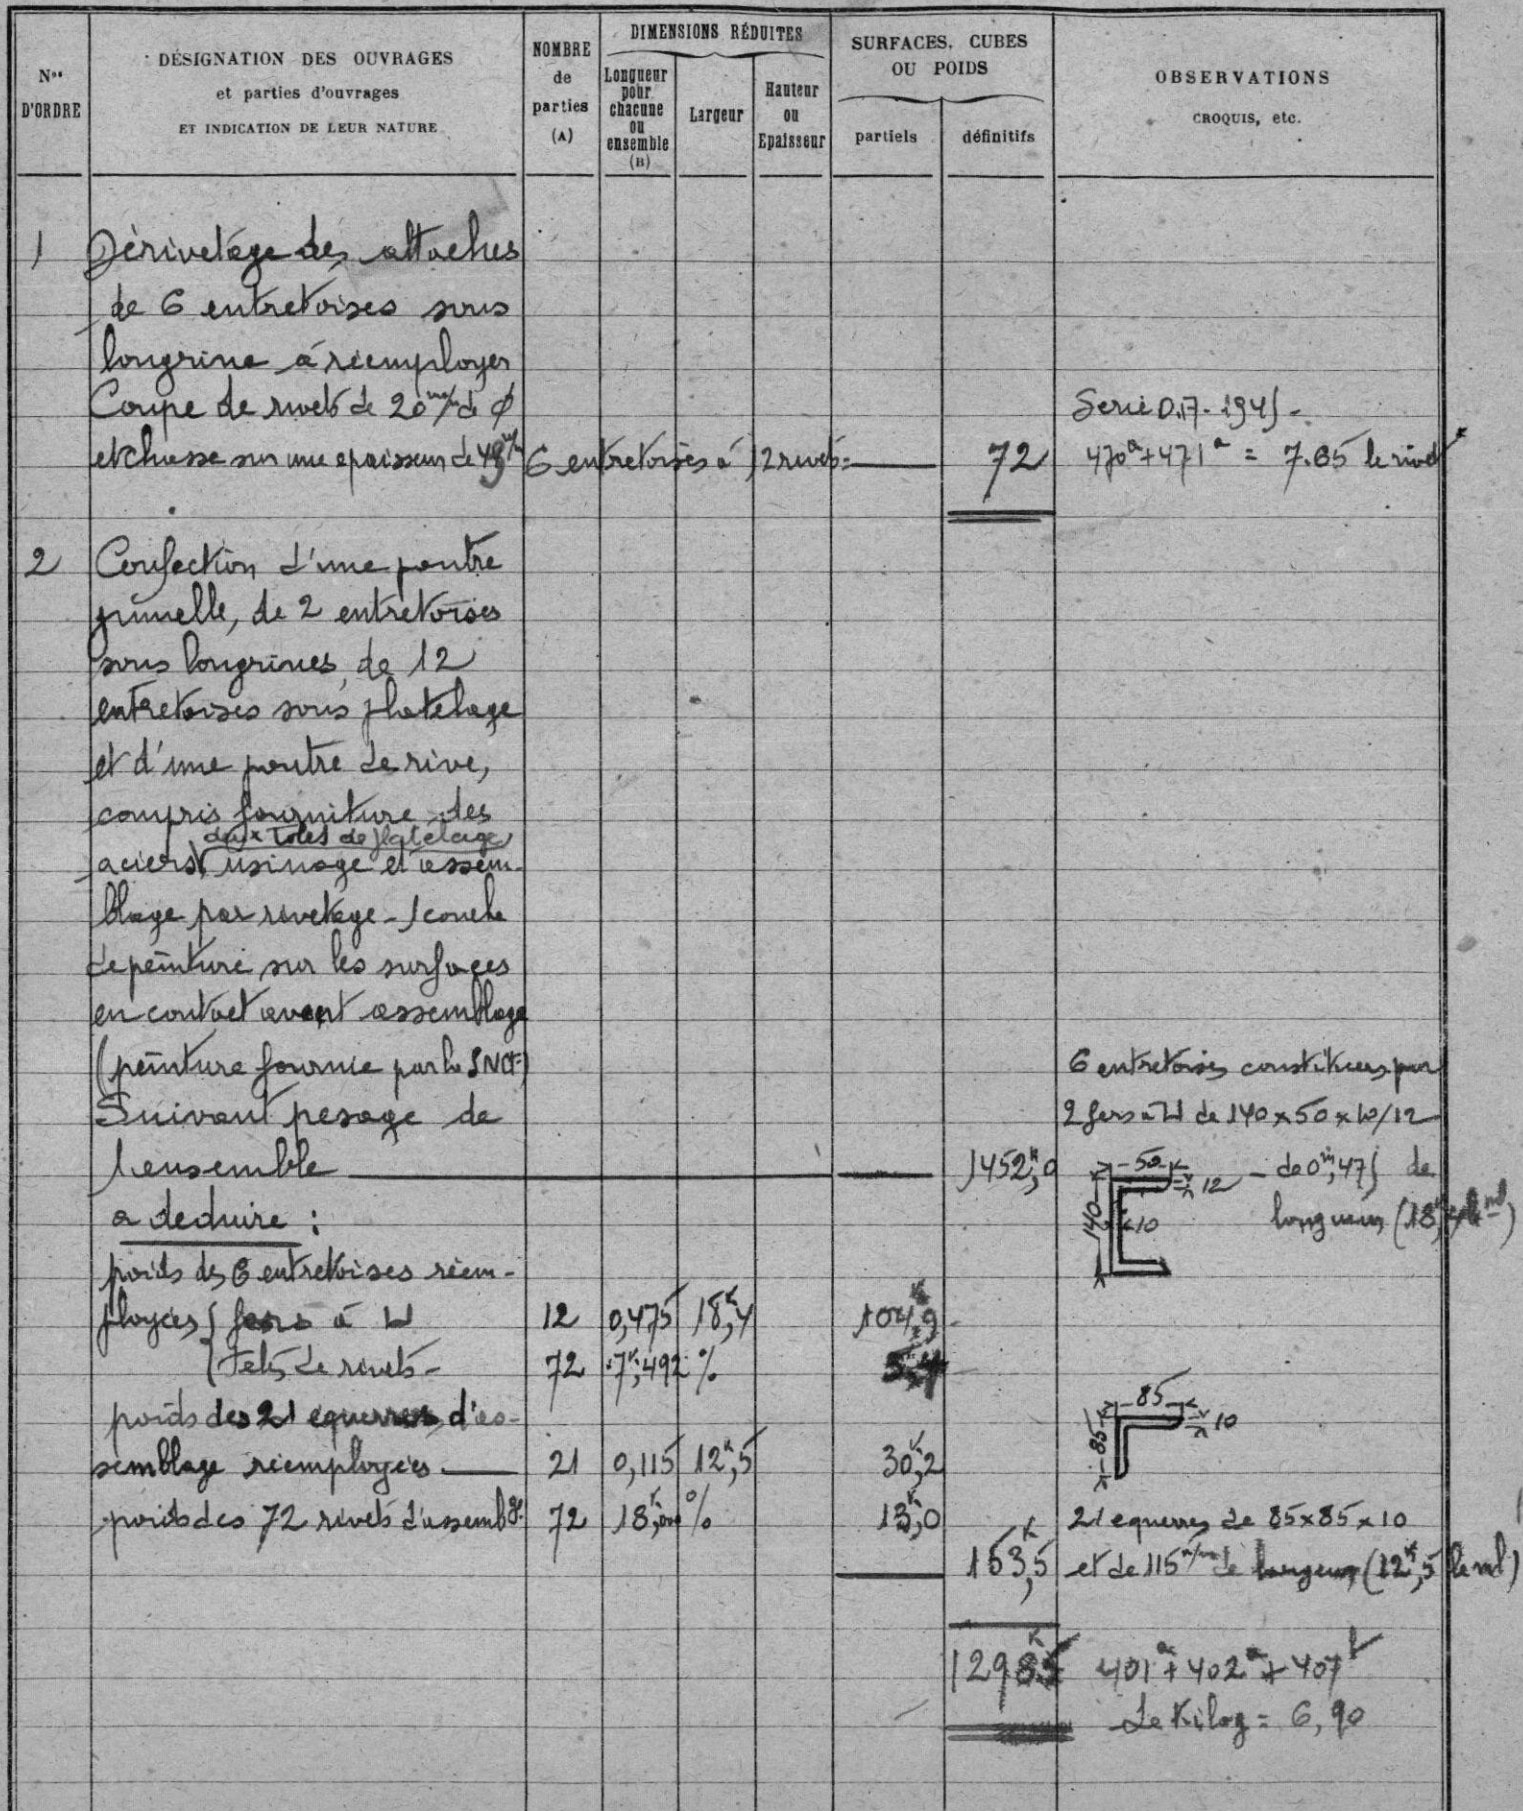 Nos D'ORDRE
DÉSIGNATION DES OUVRAGES
et parties d'ouvrages
ET INDICATION DE LEUR NATURE
NOMBRE de parties (A)
DIMENSIONS RÉDUITES
Longueur pour chacune ou ensemble (B)
Largeur
Hauteur ou Epaisseur
SURFACES, CUBES OU POIDS
partiels
définitifs
OBSERVATIONS
CROQUIS, etc.
1 Dérivetage des attaches
de 6 entretoises sous
longrine à réemployer
Coupe de rivets de 20 m/m de ϕ Serie D.17. 1945 -
et chasse sur une epaisseur de 49 m/m 6 entretoises à 12 rivets = 72 470a + 471a = 7.65 le rivet
2 Confection d'une poutre
jumelle, de 2 entretoises
sous longrines, de 12
entretoises sous platelage
et d'une poutre de rive,
compris fourniture des
deux toles de platelage
aciers usinage et assem-
blage par rivetage - 1 couche
de peinture sur les surfaces
en contact avant assemblage
(peinture fournie par la SNCF) 6 entretoises constituées par
Suivant pesage de 2 fers à ⊔ de 140 x 50 x 10/12
l'ensemble 1452k,0 50 12 - de 0m,475 de
a deduire : 140 10 longueur (18k,4 le ml)
poids des 6 entretoises réem-
ployées { fers à ⊔ 12 0,475 18k,4 104k,9
{ Tetes de rivets - 72 7k,492 % 5,4
poids des 21 equerres d'as- 85 10
semblage réemployées 21 0,115 12k,5 30k,2 85
poids des 72 rivets d'assembge 72 18k,000 % 13k,0 21 equerres de 85 x 85 x 10
153k,5 et de 115 m/m de longueur (12k,5 le ml)
1298k5 401a + 402a + 407
Le Kilog = 6,90